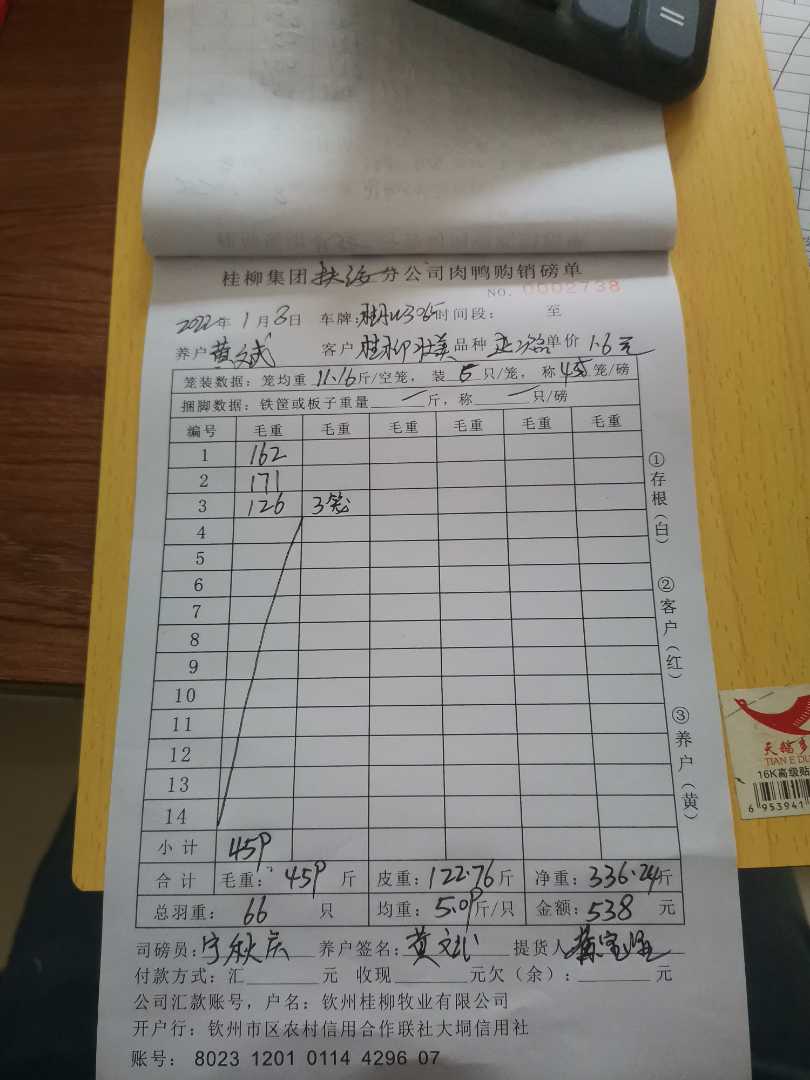 桂柳集团扶绥分公司肉鸭购销磅单
NO. 0002738
2022年1月8日 车牌: 时间段: 至
养户 黄文武 客户 桂柳壮美 品种 单价 1.6元
笼装数据: 笼均重 11.16 斤/空笼, 装 6 只/笼, 称 笼/磅
捆脚数据: 铁筐或板子重量 — 斤, 称 — 只/磅
编号 毛重 毛重 毛重 毛重 毛重 毛重
1 162
2 171
3 126 3笼
4
5
6
7
8
9
10
11
12
13
14
小计 459
合计 毛重: 459 斤 皮重: 122.76 斤 净重: 336.24 斤
总羽重: 66 只 均重: 5.09 斤/只 金额: 538 元
司磅员: 养户签名: 黄文武 提货人
付款方式: 汇 元 收现 元欠(余): 元
公司汇款账号, 户名: 钦州桂柳牧业有限公司
开户行: 钦州市区农村信用合作联社大垌信用社
账号: 8023 1201 0114 4296 07
①存根(白)
②客户(红)
③养户(黄)
TIAN E DU
16K高级贴
6 953941